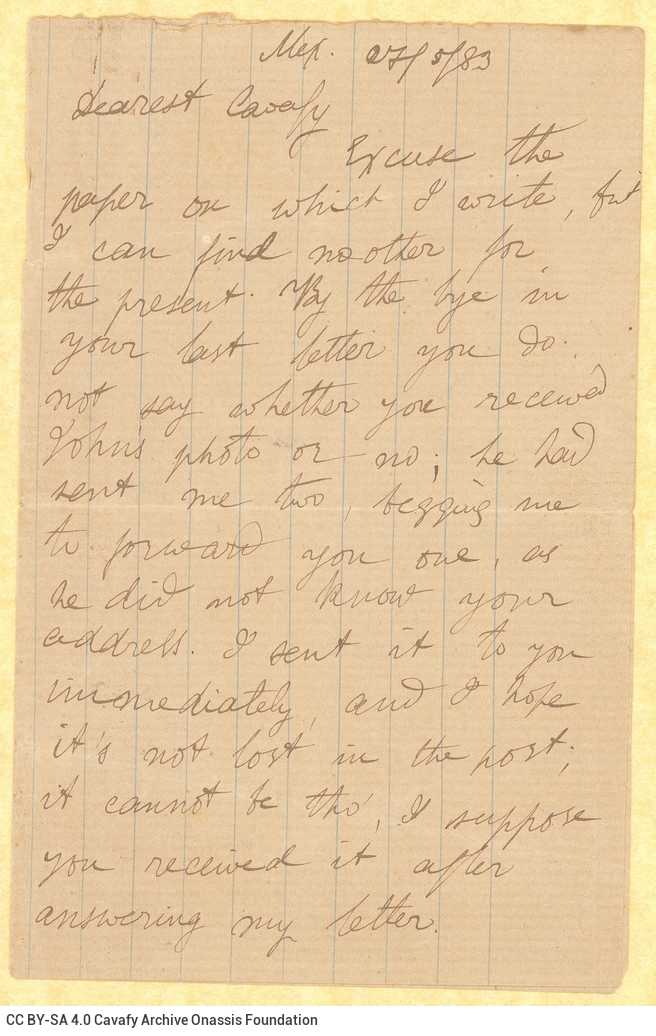 Alex. 27/5/83
Dearest Cavafy
Excuse the
paper on which I write, but
I can find no other for
the present. By the bye in
your last letter you do
not say whether you received
John's photo or no; he had
sent me two, begging me
to forward you one, as
he did not know your
address. I sent it to you
immediately, and I hope
it's not lost in the post;
it cannot be tho', I suppose
you received it after
answering my letter.
CC BY-SA 4.0 Cavafy Archive Onassis Foundation